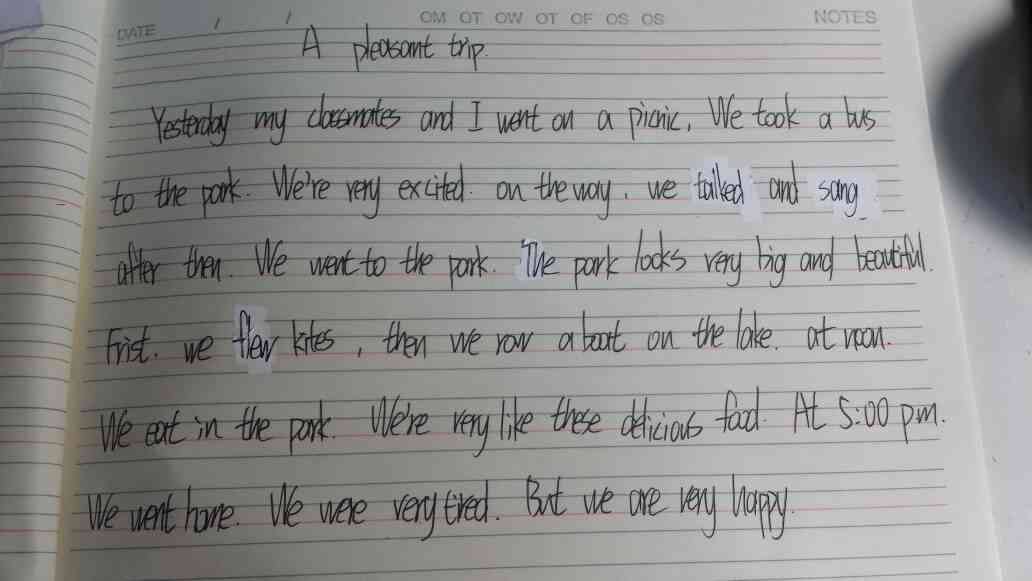 DATE / / OM OT OW OT OF OS OS NOTES
A pleasant trip.
Yesterday my classmates and I went on a picnic. We took a bus
to the park. We're very excited. on the way. we talked and sang
after then. We went to the park. The park looks very big and beautiful.
Frist. we flew kites, then we row a boat on the lake. at noon.
We eat in the park. We're very like these delicious food. At 5:00 pm.
We went home. We were very tired. But we are very happy.